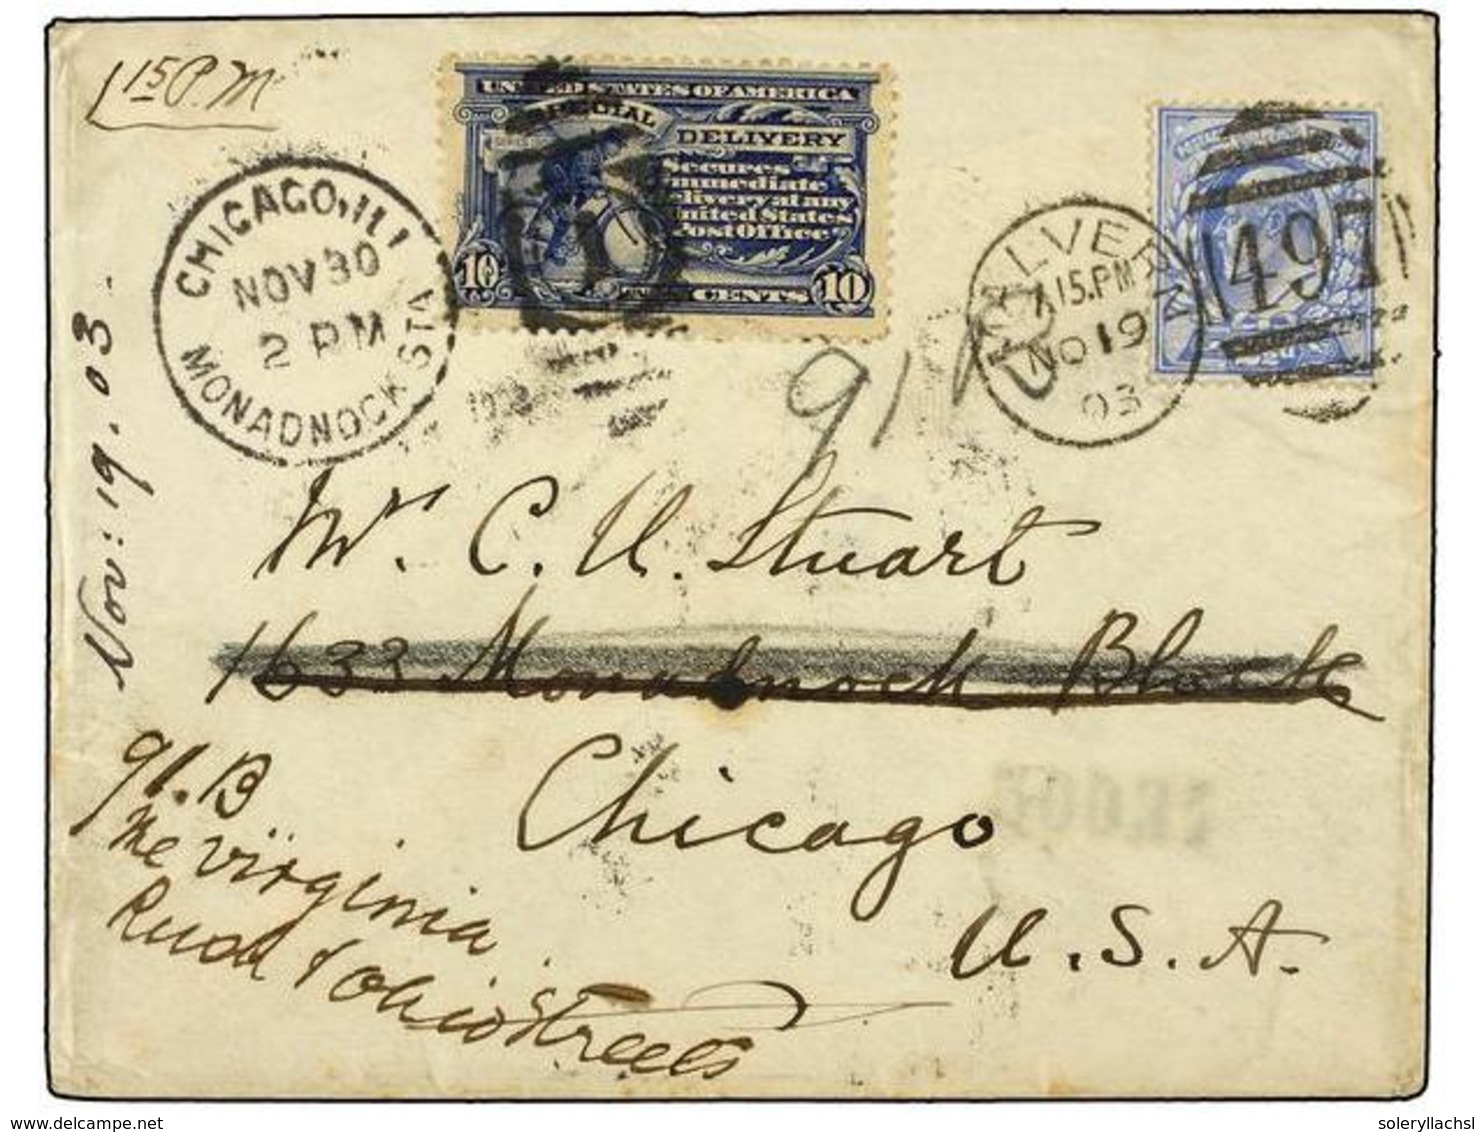 115 P.M
UNITED STATES OF AMERICA
SPECIAL
DELIVERY
Secures
immediate
delivery at any
United States
Post Office
10
TEN CENTS
10
1
CHICAGO, ILL
NOV 30
2 PM
MONADNOCK STA
MALVERN
7.15.PM
NO 19
03
497
91 B
Nov: 19. 03.
Mr. C. U. Stuart
1633 Monadnock Block
Chicago
U.S.A.
91.B
The Virginia
Rush & Ohio Streets
delcampe.net
soleryllachsl